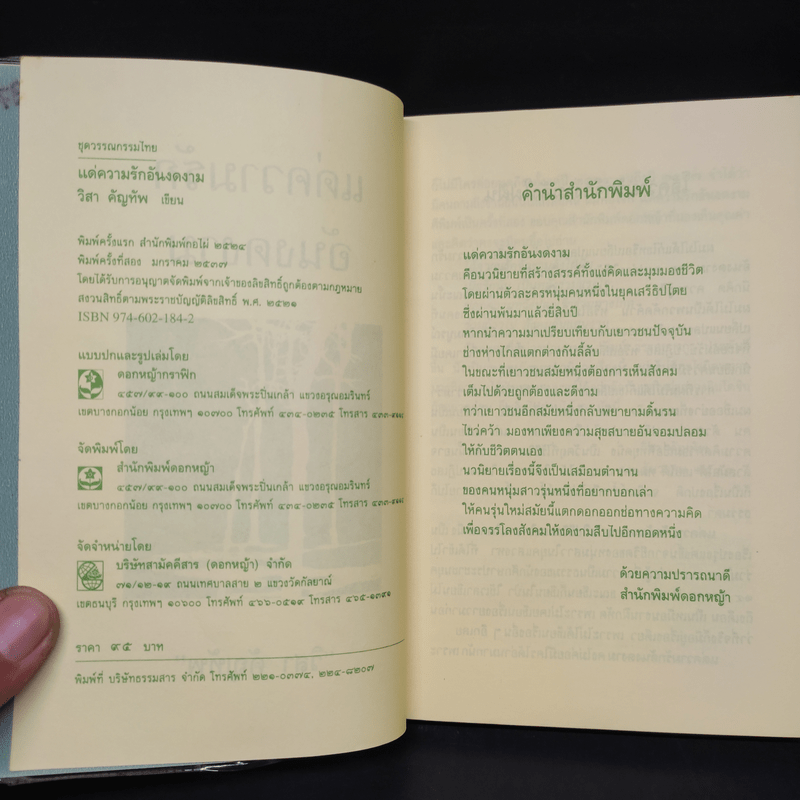 ชุดวรรณกรรมไทย
แด่ความรักอันงดงาม
วิสา คัญทัพ เขียน
พิมพ์ครั้งแรก สำนักพิมพ์กอไผ่ ๒๕๒๔
พิมพ์ครั้งที่สอง มกราคม ๒๕๓๗
โดยได้รับการอนุญาตจัดพิมพ์จากเจ้าของลิขสิทธิ์ถูกต้องตามกฎหมาย
สงวนสิทธิ์ตามพระราชบัญญัติลิขสิทธิ์ พ.ศ. ๒๕๒๑
ISBN 974-602-184-2
แบบปกและรูปเล่มโดย
ดอกหญ้ากราฟิก
๔๕๗/๙๙-๑๐๐ ถนนสมเด็จพระปิ่นเกล้า แขวงอรุณอมรินทร์
เขตบางกอกน้อย กรุงเทพฯ ๑๐๗๐๐ โทรศัพท์ ๔๓๔-๐๒๓๕ โทรสาร
จัดพิมพ์โดย
สำนักพิมพ์ดอกหญ้า
๔๕๗/๙๙-๑๐๐ ถนนสมเด็จพระปิ่นเกล้า แขวงอรุณอมรินทร์
เขตบางกอกน้อย กรุงเทพฯ ๑๐๗๐๐ โทรศัพท์ ๔๓๔-๐๒๓๕ โทรสาร
จัดจำหน่ายโดย
บริษัทสามัคคีสาร (ดอกหญ้า) จำกัด
๗๑/๑๒-๑๙ ถนนเทศบาลสาย ๒ แขวงวัดกัลยาณ์
เขตธนบุรี กรุงเทพฯ ๑๐๖๐๐ โทรศัพท์ ๔๖๖-๐๕๑๙ โทรสาร ๔๖๕-๑๓๙๑
ราคา ๙๕ บาท
พิมพ์ที่ บริษัทธรรมสาร จำกัด โทรศัพท์ ๒๒๑-๐๓๗๔, ๒๒๔-๘๒๐๗
คำนำสำนักพิมพ์
แด่ความรักอันงดงาม
คือนวนิยายที่สร้างสรรค์ทั้งแง่คิดและมุมมองชีวิต
โดยผ่านตัวละครหนุ่มคนหนึ่งในยุคเสรีธิปไตย
ซึ่งผ่านพ้นมาแล้วยี่สิบปี
หากนำความมาเปรียบเทียบกับเยาวชนปัจจุบัน
ช่างห่างไกลแตกต่างกันลี้ลับ
ในขณะที่เยาวชนสมัยหนึ่งต้องการเห็นสังคม
เต็มไปด้วยถูกต้องและดีงาม
ทว่าเยาวชนอีกสมัยหนึ่งกลับพยายามดิ้นรน
ไขว่คว้า มองหาเพียงความสุขสบายอันจอมปลอม
ให้กับชีวิตตนเอง
นวนิยายเรื่องนี้จึงเป็นเสมือนตำนาน
ของคนหนุ่มสาวรุ่นหนึ่งที่อยากบอกเล่า
ให้คนรุ่นใหม่สมัยนี้แตกดอกออกช่อทางความคิด
เพื่อจรรโลงสังคมให้งดงามสืบไปอีกทอดหนึ่ง
ด้วยความปรารถนาดี
สำนักพิมพ์ดอกหญ้า